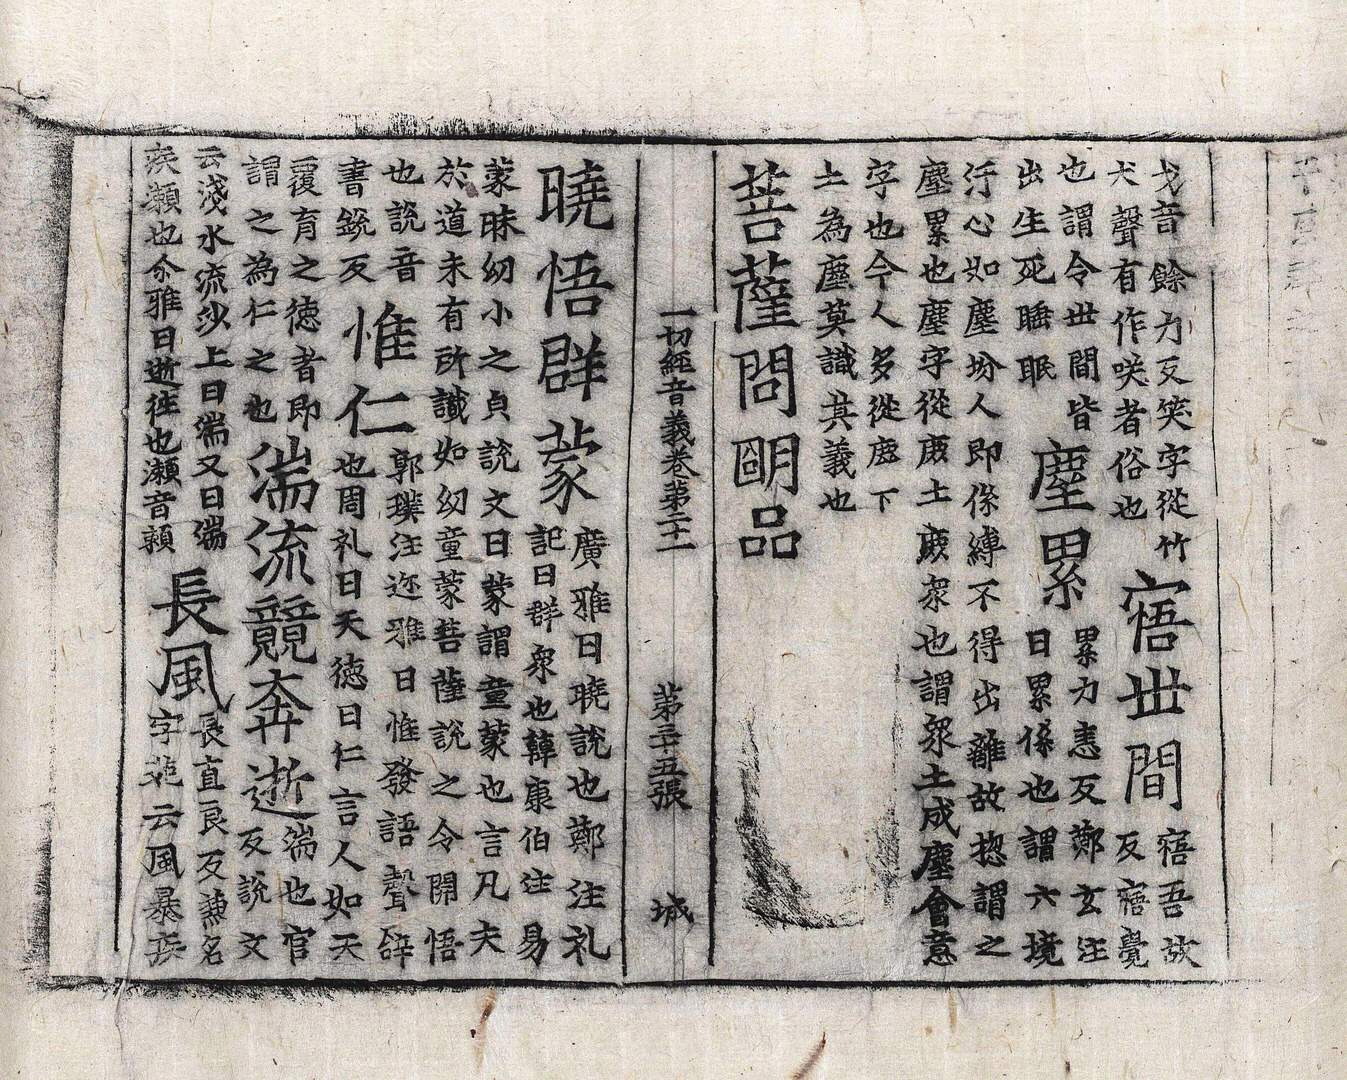 戈音餘力反笑字從竹
犬聲有作咲者俗也
寤世間
寤吾故
反寤覺
也謂令世間皆
出生死睡眠
塵累
累力恚反鄭玄注
日累係也謂六境
汙心如塵坋人即係縛不得出離故惣謂之
塵累也塵字從鹿土㢋衆也謂衆土成塵會意
字也今人多從鹿下
土為塵莫識其義也
菩薩問明品
一切經音義卷第二十一
第三十五張
城
曉悟群蒙
廣雅日曉說也鄭注礼
記日群衆也韓康伯注易
蒙昧幼小之貞說文日蒙謂童蒙也言凡夫
於道未有所識如幼童蒙菩薩說之令開悟
也說音
書銳反
惟仁
郭璞注迩雅日惟發語聲辞
也周礼日天德日仁言人如天
覆育之德者即
謂之為仁之也
湍流競奔逝
湍也官
反說文
云淺水流沙上日湍又日湍
疾瀨也尒雅日逝往也瀨音賴
長風
長直良反薫名
字菀云風暴疾